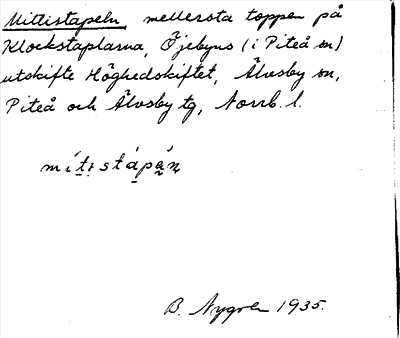 Mittistapeln, mellersta toppen på
Klockstaplarna, Öjebyns (i Piteå sn)
utskifte Höghedskiftet, Älvsby sn,
Piteå och Älvsby tg, Norrb. l.
B. Nygren 1935.